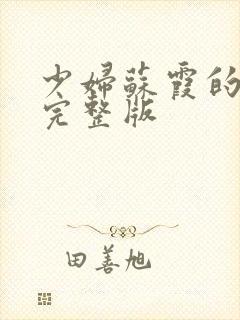 少婦蘇霞的
完整版
田善旭